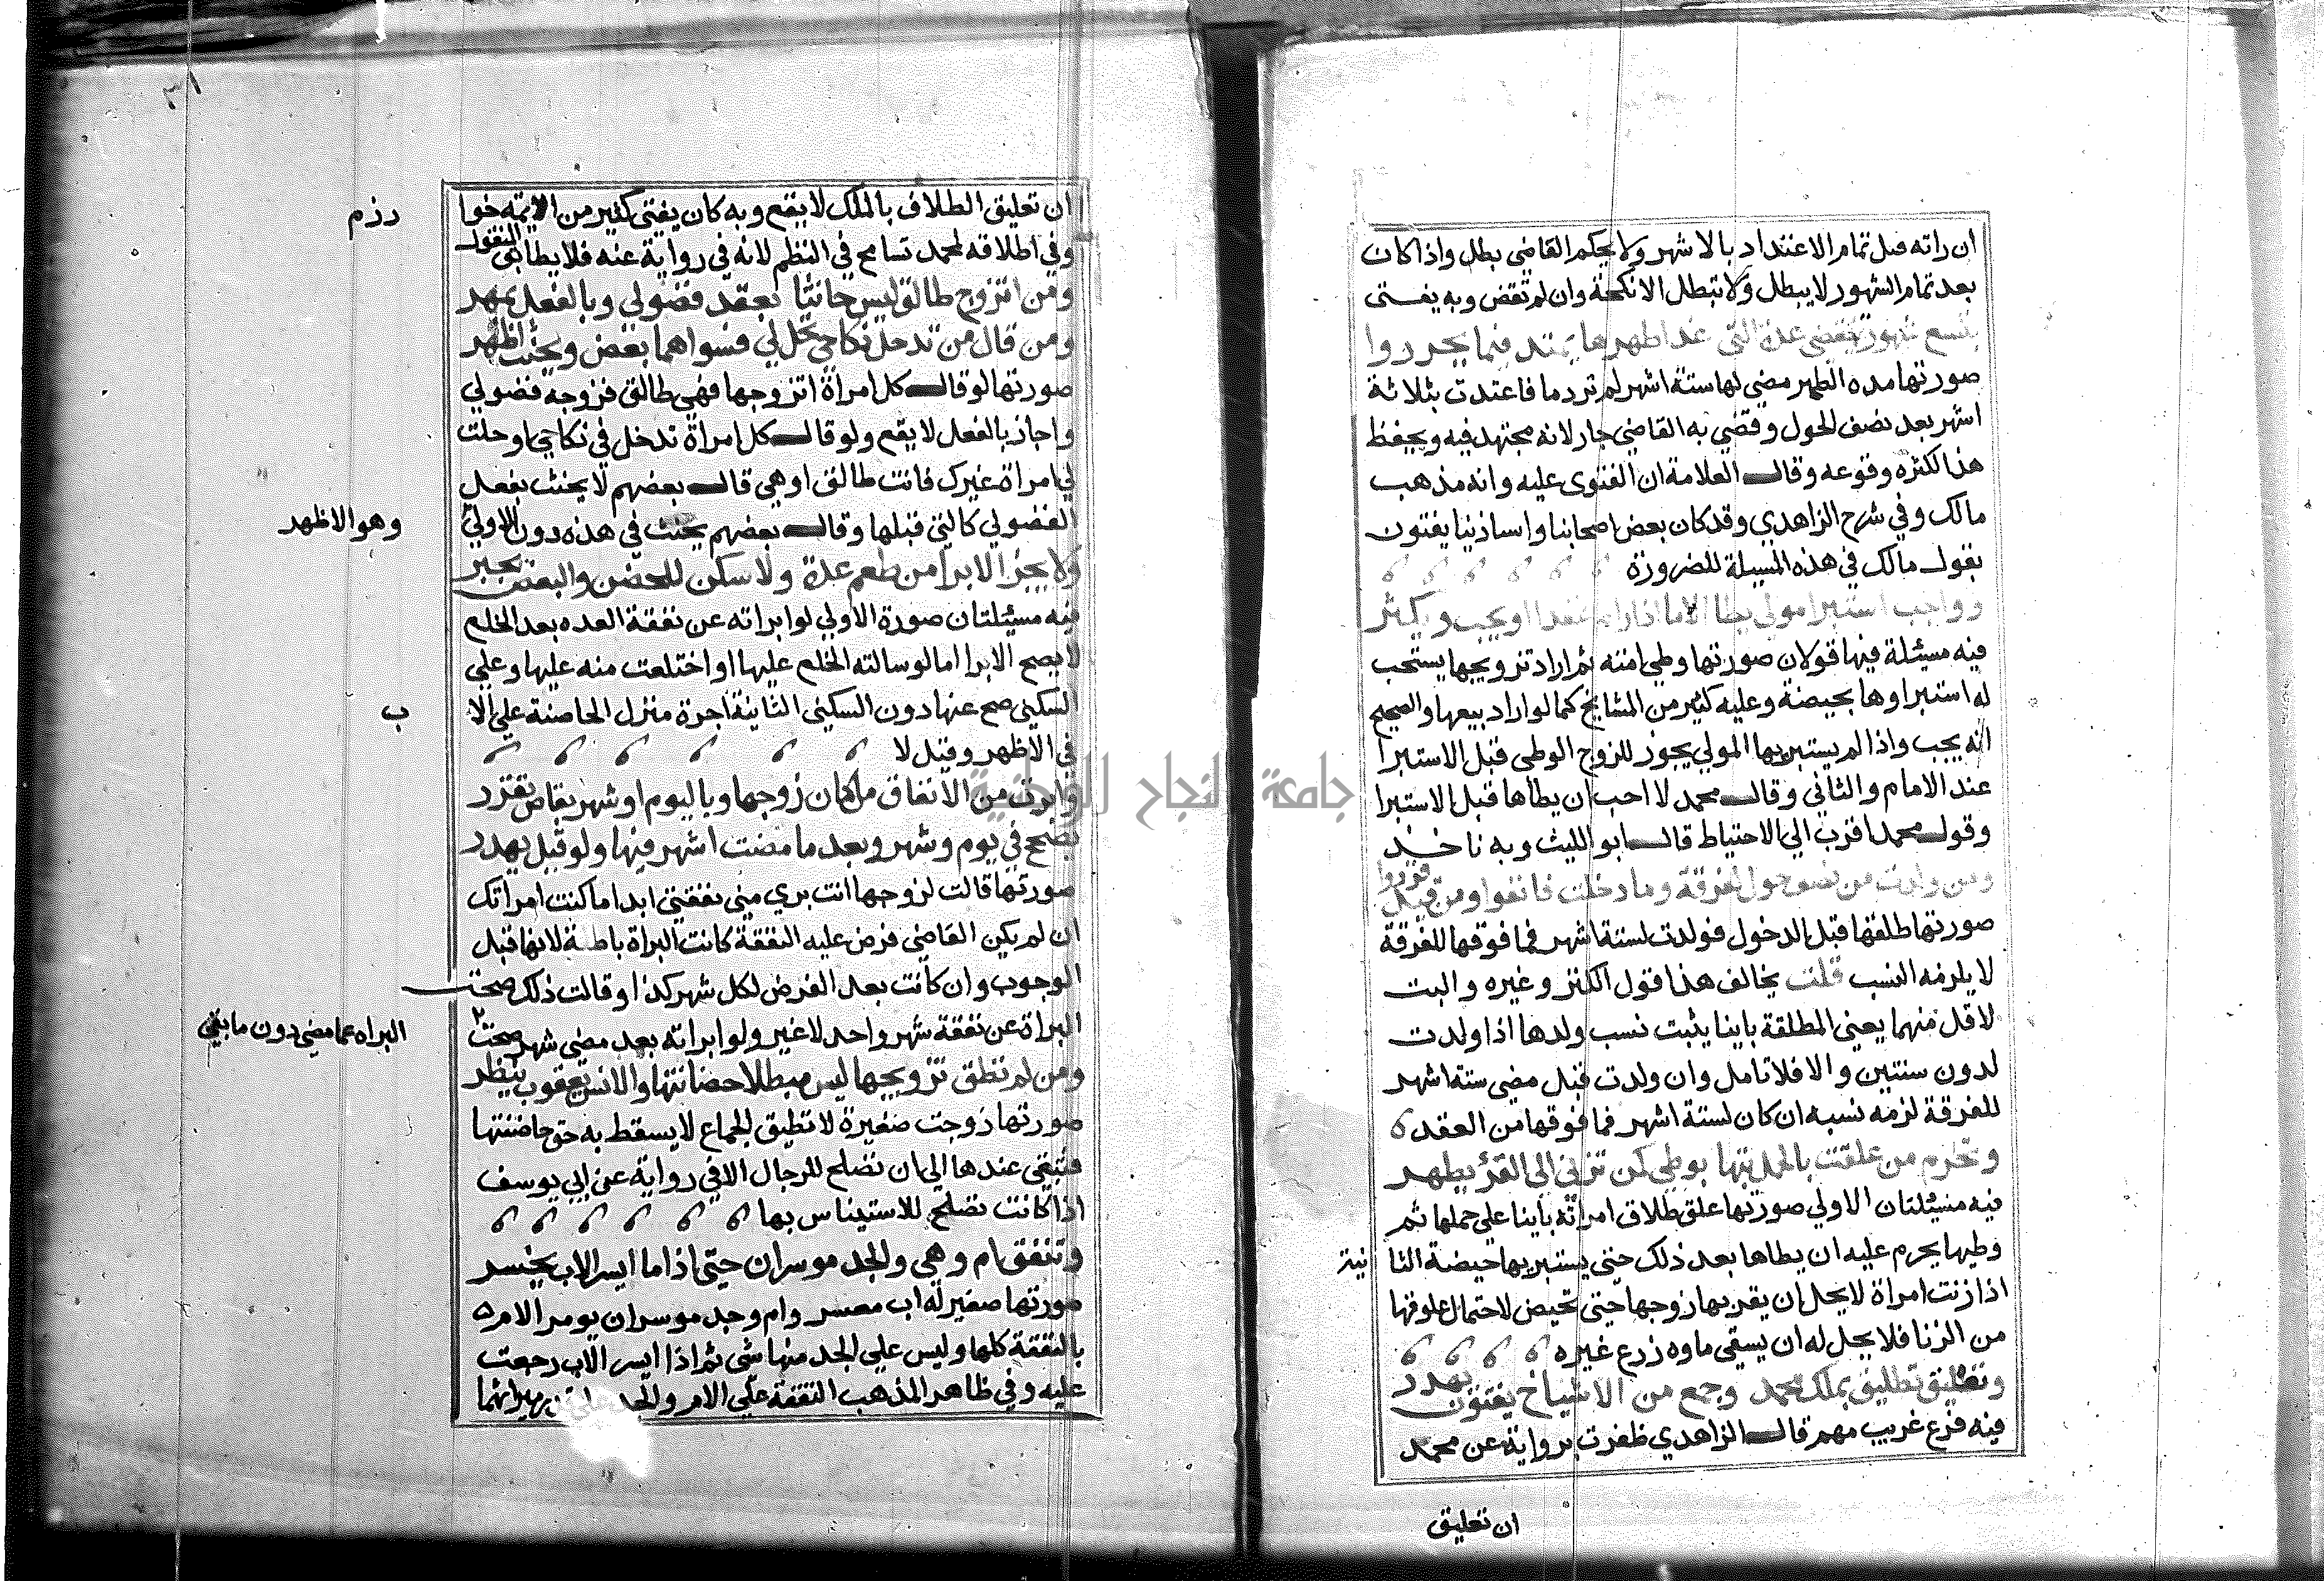 ان راته قبل تمام الاعتداد بالاشهر ولا يحكم القاضي بطل واذا كان
بعد تمام الشهور لا يبطل ولا تبطل الانكحة وان لم تقض وبه يفتى
بتسع شهور تنقضي عدة التي غدا طهرها يمتد فيما يحرروا
صورتها مده الطهر مضي لها ستة اشهر لم تر دما فاعتدت بثلاثة
اشهر بعد نصف الحول وقضي به القاضي جاز لانه مجتهد فيه ويحفظ
هذا لكثره وقوعه وقال العلامة ان الفتوى عليه وانه مذهب
مالك وفي شرح الزاهدي وقد كان بعض اصحابنا واساذنيا يفتون
بقول مالك في هذه المسيلة للضرورة
وواجب استبرا مولي يطا الاما اذا رام عقدا او يحب ويكثر
فيه مسئلة فيها قولان صورتها وطي امته ثم اراد تزويجها يستحب
له استبراوها بحيضة وعليه كثير من المشايخ كما لو اراد بيعها والصحيح
انه يجب واذا لم يستبر بها المولي يجوز للزوج الوطي قبل الاستبرا
عند الامام والثاني وقال محمد لا احب ان يطأها قبل الاستبرا
وقول محمد اقرب الي الاحتياط قال ابو الليث وبه ناخذ
ومن ولدت من نصف حول لفرقة وما دخلت فانفوا ومن قبل قرروا
صورتها طلقها قبل الدخول فولدت لستة اشهر فما فوقها للفرقة
لا يلزمه النسب قلت يخالف هذا قول الكنز وغيره والبت
لاقل منهما يعني المطلقة باينا يثبت نسب ولدها اذا ولدت
لدون سنتين والا فلا تامل وان ولدت قبل مضي ستة اشهر
للفرقة لزمه نسبه ان كان لستة اشهر فما فوقها من العقد
وتحرم من علقت بالحمل بتها بوطي كمن تزني الي القرؤ يطهر
فيه مسئلتان الاولي صورتها علق طلاق امراته باينا علي حملها ثم
وطيها يحرم عليه ان يطاها بعد ذلك حتي يستبر بها حيضة الثا
نية
اذا زنت امراة لا يحل ان يقربها زوجها حتي تحيض لاحتمال علوقها
من الزنا فلا يحل له ان يسقي ماوه زرع غيره
وتعليق تطليق بملك محمد وجمع من الاشياخ يفتون بهدر
فيه فرع غريب مهم قال الزاهدي ظفرت برواية عن محمد
ان تعليق
ان تعليق الطلاق بالملك لا يقع وبه كان يفتي كثير من الايمة خوا
رزم
وفي اطلاقه لمحمد تسامح في النظم لانه في رواية عنه فلا يطابق النقول
ومن اتزوج طالق ليس حانثا بعقد فضولي وبالفعل يمهد
ومن قال من تدخل نكاحي تحل لي فسواهما بعض ويحنث اظهر
صورتها لو قال كل امراة اتزوجها فهي طالق فزوجه فضولي
واجاز بالفعل لا يقع ولو قال كل امراة تدخل في نكاحي او حلت
لي امراة غيرك فانت طالق او هي قال بعضهم لا يحنث بفعل
الفضولي كالتي قبلها وقال بعضهم يحنث في هذه دون الاولي
وهو الاظهر
ولا يجز الابرا من طعم عدة ولا سكن للحضن والبعض يجبر
فيه مسئلتان صورة الاولي لو ابراته عن نفقة العده بعد الخلع
لا يصح الابرا اما لو سالته الخلع عليها او اختلعت منه عليها وعلي
السكني صح عنها دون السكني الثانية اجرة منزل الحاضنة علي الا
ب
في الاظهر وقيل لا
وابرت من الانفاق ما كان زوجها وباليوم او شهر بقاض تقرر
يصح في يوم وشهر وبعد ما مضت اشهر فيها ولو قبل يهدر
صورتها قالت لزوجها انت بري مني نفقتي ابدا ما كنت امراتك
ان لم يكن القاضي فرض عليه النفقة كانت البراة باطلة لانها قبل
الوجوب وان كانت بعد الفرض لكل شهر كذا وقالت ذلك صحت
البراة عن نفقة شهر واحد لا غير ولو ابراته بعد مضي شهر صحت
البراه عما مضي دون ما بقي
ومن لم تطق تزويجها ليس مبطلا حضانتها والانس يعقوب ينظر
صورتها زوجت صغيرة لا تطيق الجماع لا يسقط به حق حاضنتها
فتبقي عندها الي ان تصلح للرجال الا في رواية عن ابي يوسف
اذا كانت تصلح للاستيناس بها
وتنفق ام وهي والجد موسران حتي اذا ما ايسر الاب يخسر
صورتها صغير له اب معسر وام وجد موسران يومر الام
بالنفقة كلها وليس علي الجد منها شي ثم اذا ايسر الاب رجعت
عليه وفي ظاهر المذهب النفقة علي الام والجد